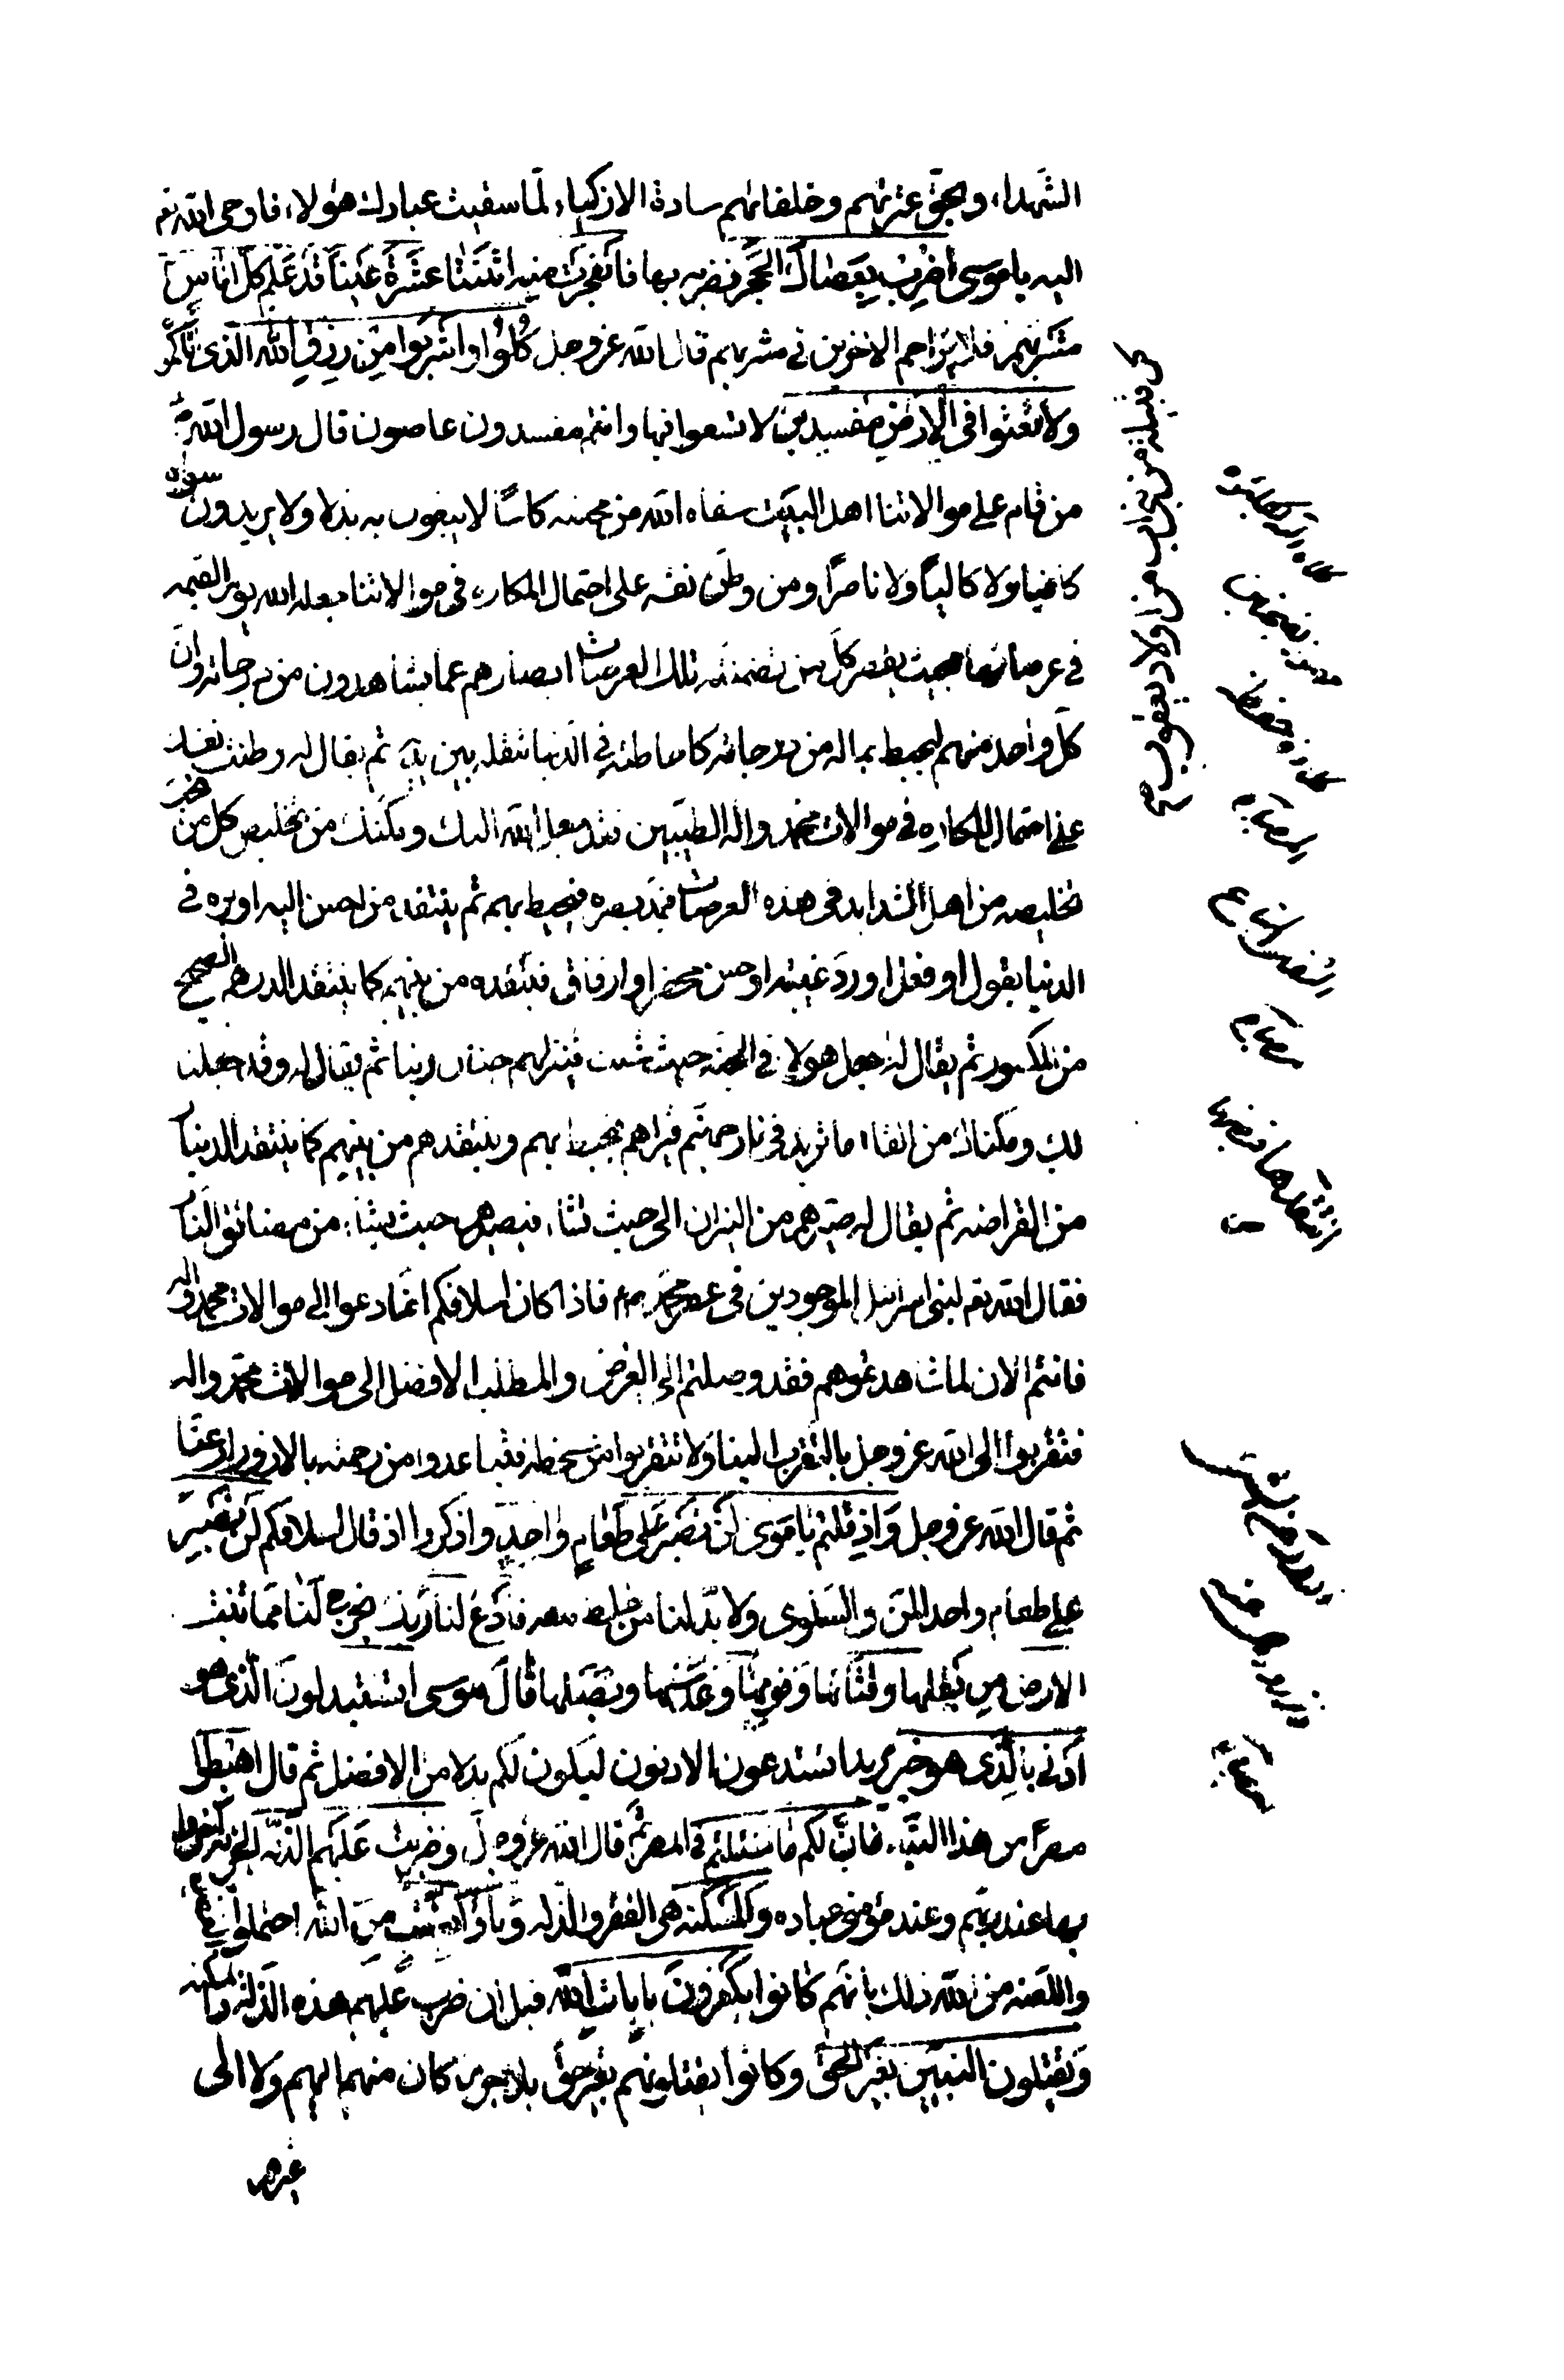 الشهداء وبحق عترتهم وخلفائهم سادة الازكياء لما سقيت عبادك هؤلاء فاوحى الله تع
اليه يا موسى اضْرِبْ بِعَصاكَ الْحَجَرَ فضربه بها فَانْفَجَرَتْ مِنْهُ اثْنَتا عَشْرَةَ عَيْناً قَدْ عَلِمَ كُلُّ اُناسٍ
مَشْرَبَهُمْ فلا يزاحم الاخرين في مشربهم قال الله عز وجل كُلُوا وَاشْرَبُوا مِنْ رِزْقِ اللهِ الذي اتاكموه
ولا تعثوا فى الارض مفسدين لا تسعوا فيها وانتم مفسدون عاصون قال رسول الله ص
من قام على موالاتنا اهل البيت سقاه الله من محبته كاسًا لا يبغون به بدلا ولا يريدون سواه
كافيا ولا كاليًا ولا ناصرًا ومن وطن نفسه على احتمال المكاره في موالاتنا جعله الله يوم القيمه
في عرصاتها بحيث يقصر كل من تضمنته تلك العرصات ابصارهم عما يشاهدون من درجاته وان
كل واحد منهم ليحيط بماله من درجاته كاحاطته في الدنيا بتلقيه بين يديه ثم يقال له وطنت نفسك
على احتمال المكاره في موالات محمد واله الطيبين فقد جعل الله اليك ومكنك من تخليص كل من تحب
تخليصه من اهل الشدايد فى هذه العرصات فيمد بصره فيحيط بهم ثم ينتقد من احسن اليه او بره في
الدنيا بقول او فعل او رد غيبة او حسن محضر او ارفاق فينتقده من بينهم كما ينتقد الدرهم الصحيح
من المكسور ثم يقال له جعل هولاء في الجنة حيث شئت فينزلهم جنات ربنا ثم يقال له وقد جعلنا
لك ومكناك من القاء ما تريد فى نار جهنم فيراهم فيحيط بهم وينتقدهم من بينهم كما ينتقد الدينار
من القراضه ثم يقال له صيرهم من النيران الى حيث تشاء فيصيرهم حيث يشاء من مضائق النار
فقال الله تع لبنى اسرائيل الموجودين فى عصر محمد ص فاذا كان اسلافكم انما دعوا الى موالات محمد واله
فانتم الان لما شاهدتموهم فقد وصلتم الى الغرض والمطلب الافضل الى موالات محمد واله
فتقربوا الى الله عز وجل بالتقرب الينا ولا تتقربوا من سخطه فتباعدوا من رحمته بالازورار عنا
ثم قال الله عز وجل وَاِذْ قُلْتُمْ يا مُوسى لَنْ نَصْبِرَ عَلى طَعامٍ واحِدٍ واذكروا اذ قال اسلافكم لن نصبر
على طعام واحد المن والسلوى ولا بد لنا من خلط معه فَادْعُ لَنا رَبَّكَ يخرج لَنا مِمّا تنبت
الارض مِن بَقْلِها وَقِثّائِها وَفُومِها وَعَدَسِها وَبَصَلِها قالَ موسى اَتَسْتَبْدِلُونَ الَّذى هو
اَدْنى بِالَّذى هو خير يريد اتستدعون الادون ليكون لكم بدلا من الافضل ثم قال اهبطوا
مصرًا من هذا التيه فان لكم ما سئلتم في المصر ثم قال الله عز وجل وضربت عليهم الذلة الجزية اخزوا
بها عند ربهم وعند مؤمنى عباده والمسكنه هى الفقر والذله وباؤا بغضب مِنَ الله احتملوا الغضب
واللعنه من الله ذلك بانهم كانوا يكفرون بايات الله قبل ان ضرب عليهم هذه الذلة والمسكنه
ويقتلون النبيين بغير الحق وكانوا يقتلونهم بغير حق بلا جرم كان منهم اليهم ولا الى
غيرهم
كل قبيلة من بنى اب من اولاد يعقوب ع